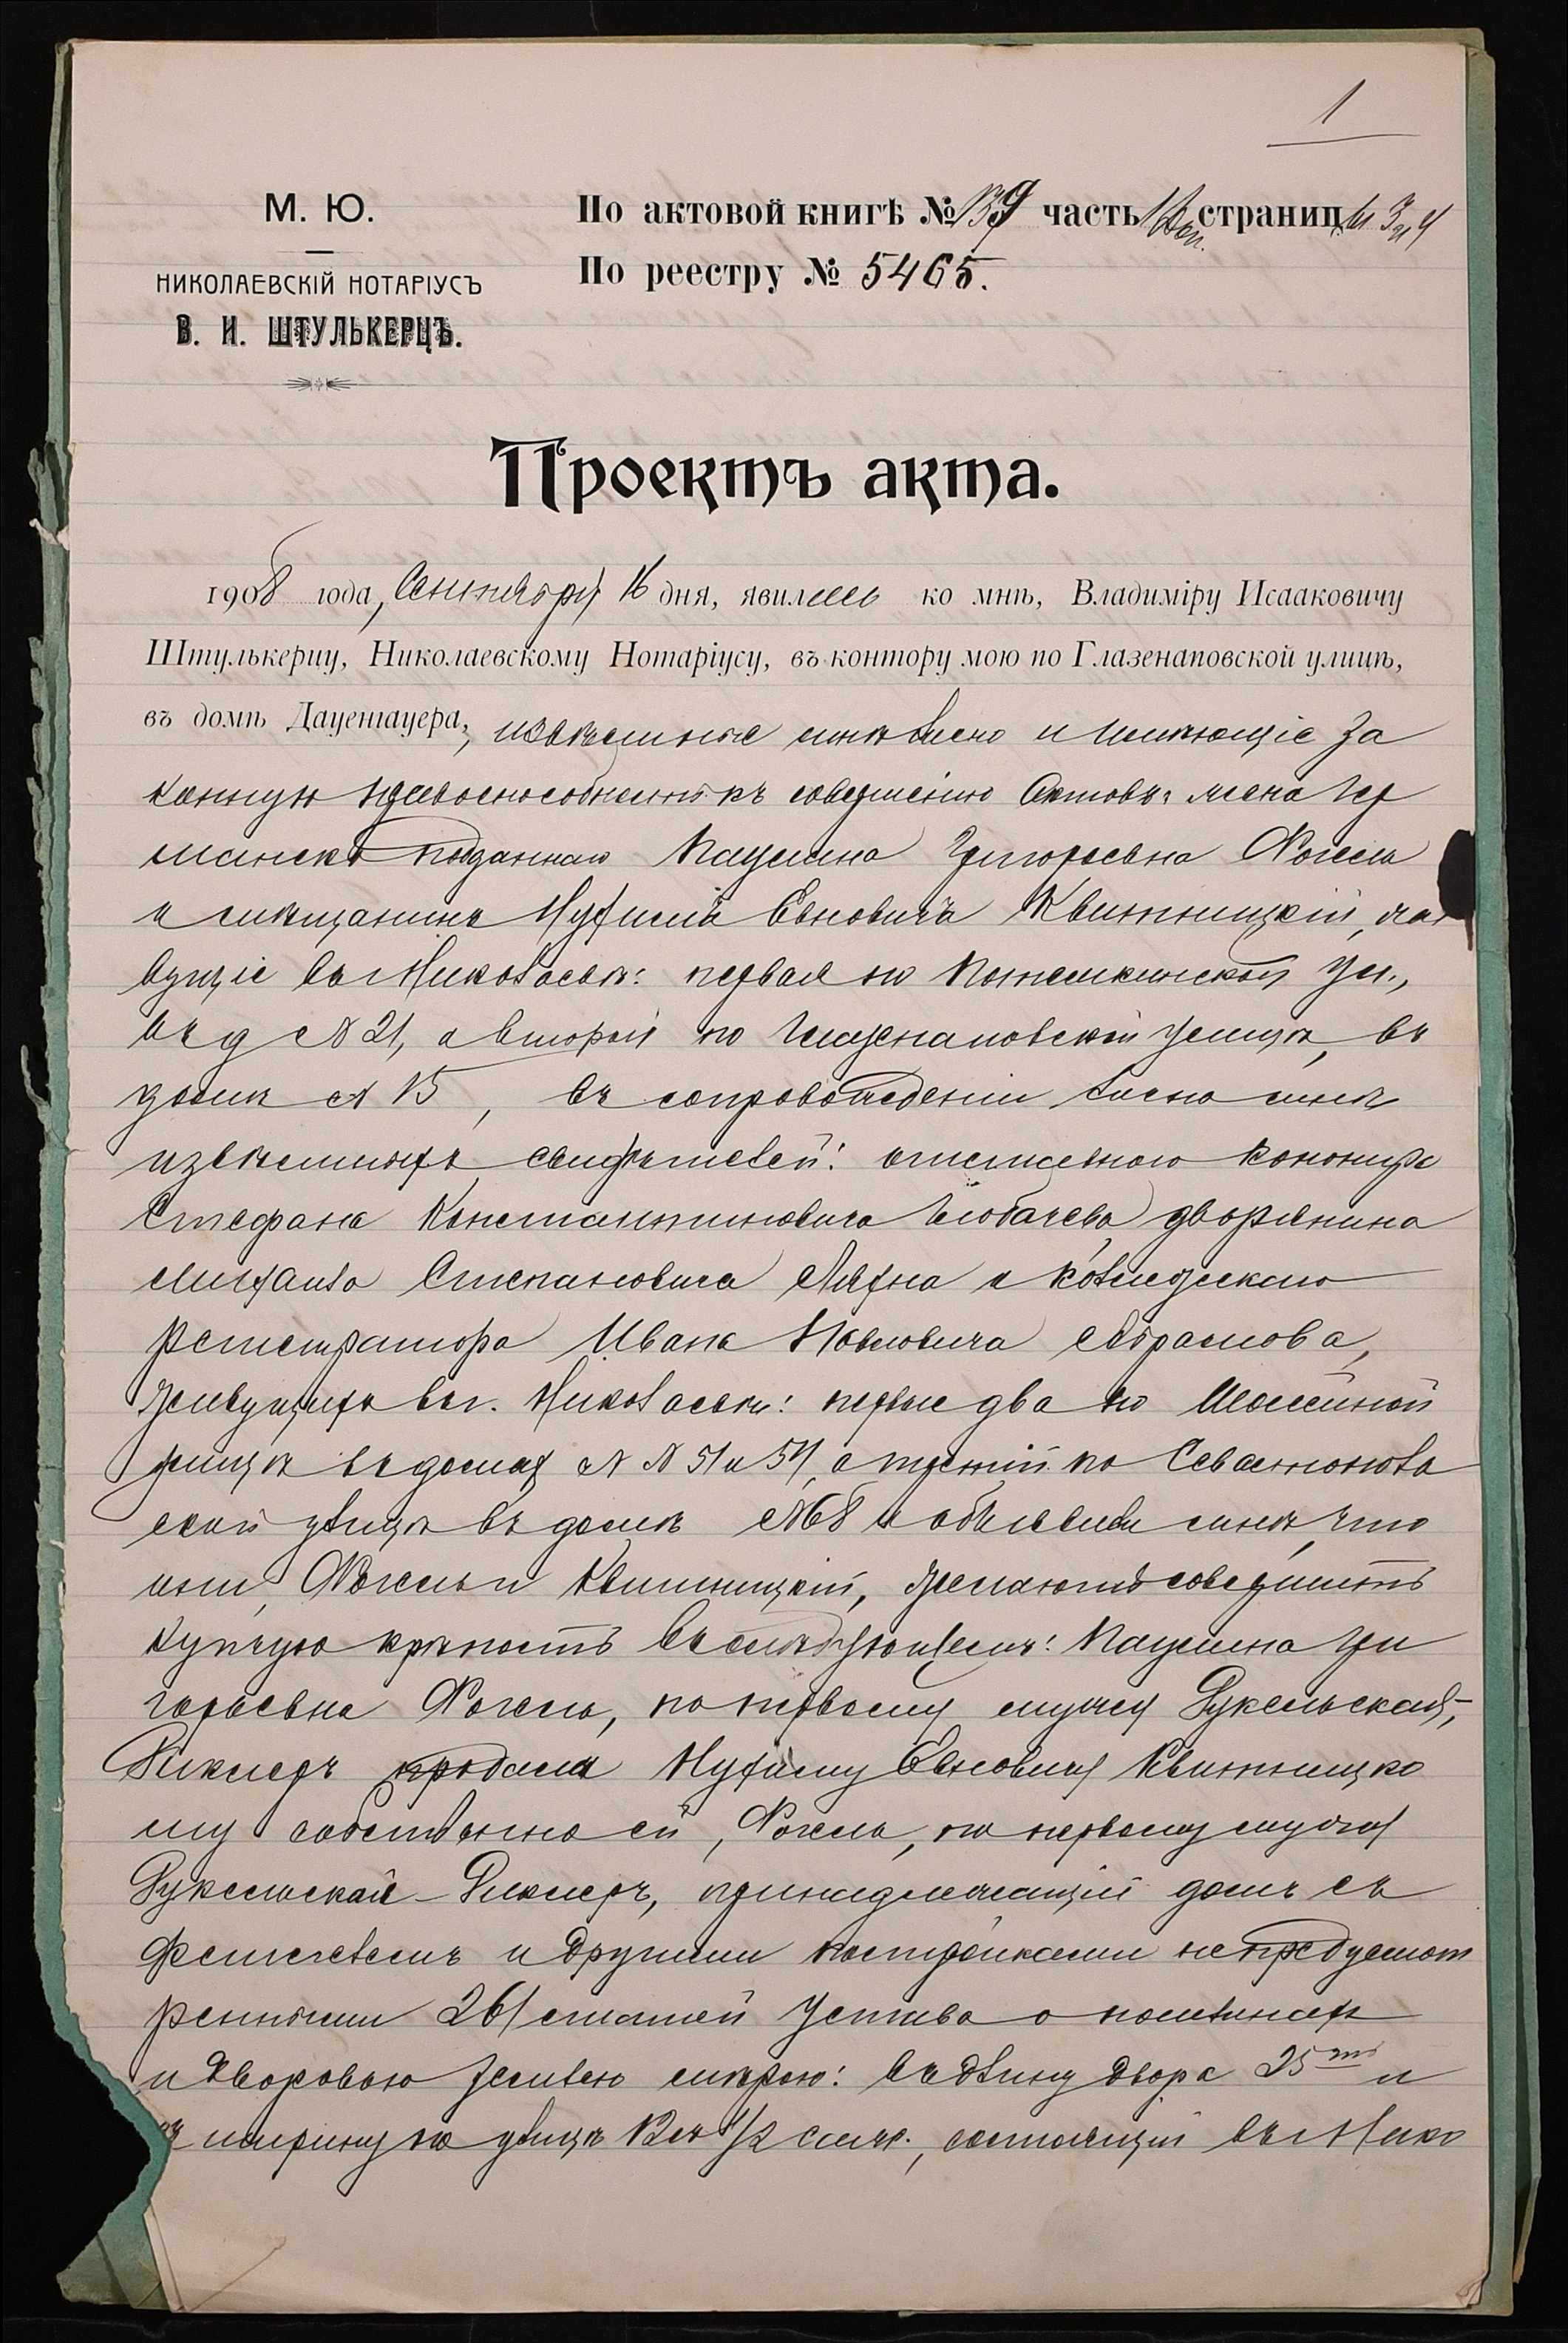 1
М. Ю.
НИКОЛАЕВСКІЙ НОТАРІУСЪ
В. И. ШТУЛЬКЕРЦЪ.
По актовой книгѣ № 139 часть страниц
По реестру № 5465.
Проектъ акта.
1908 года, Сентября 16 дня, явились ко мнѣ, Владиміру Исааковичу
Штулькерцу, Николаевскому Нотаріусу, въ контору мою по Глазенаповской улицѣ,
въ домѣ Дауенгауера, извѣстные мнѣ лично и имѣющіе за
конную правоспособность къ совершенію актовъ: жена Гер
манск подданнаго Паулина Григорьевна
и мѣщанинъ Нухимъ Евновичъ Квитницкій, жи
вущіе въ Николаевѣ: первая по Потемкинской ул.,
въ д № 21, а второй по Глазенаповской улицѣ, въ
домѣ № 15, въ сопровожденіи лично мнѣ
извѣстныхъ свидѣтелей: отставного канонира
Стефана Константиновича дворянина
Михаила Степановича и Коллежскаго
регистратора Ивана Павловича Абрамова,
живущихъ въ г. Николаевѣ: первые два по
улицѣ въ домах № № 51 и 54, а третій по Севастополь
ской улицѣ въ домѣ № 68 и объявили мнѣ, что
они, и Квитницкій, желаютъ совершить
купчую крѣпость въ слѣдующемъ: Паулина Гри
горьевна по первому мужу Рукельская-
Риклеръ продала Нухиму Евновичу Квитницко
му собственно ей, по первому мужу
Рукельской-Риклеръ, принадлежащій домъ съ
флигелемъ и другими постройками не предусмот
ренными 261 статьей Устава о пошлинахъ
и дворовою землею мѣрою: въ длину двора 25 ти и
въ ширину по улицѣ 12 съ 1/2 саж., состоящій въ Нико